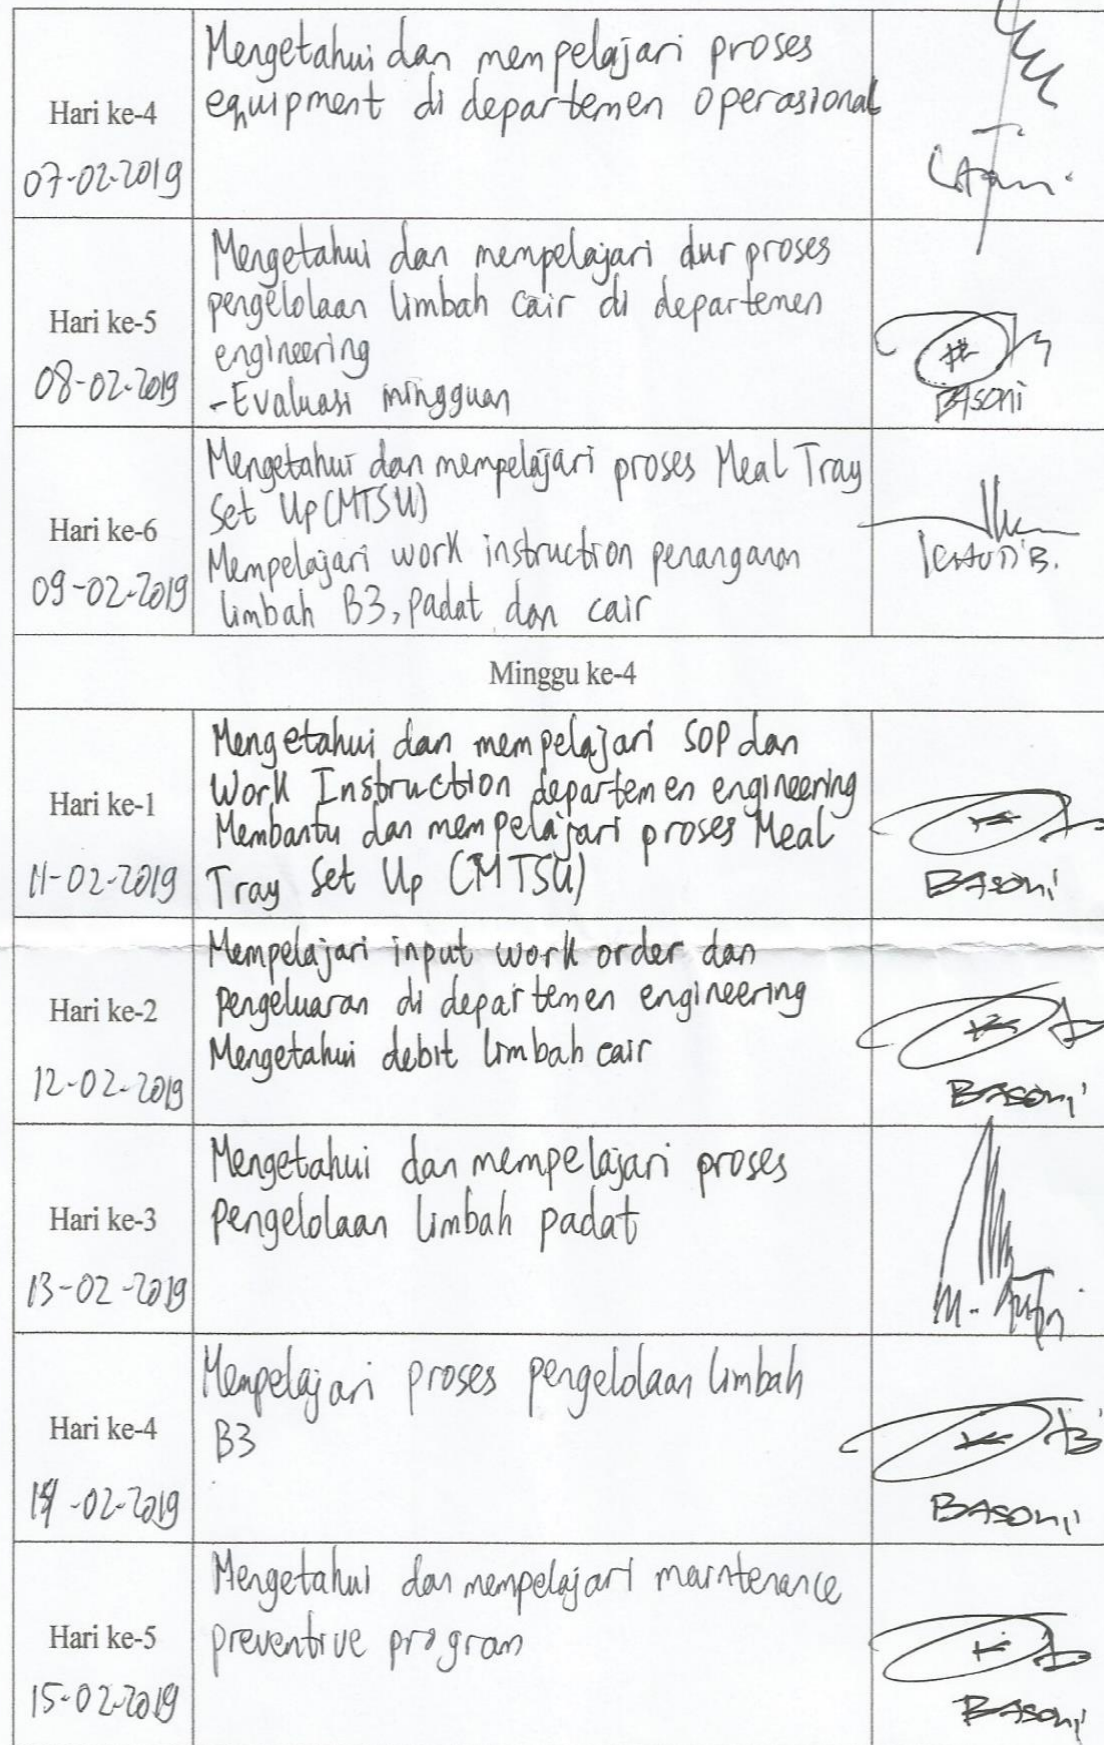 Mengetahui dan mempelajari proses
equipment di departemen operasional
Hari ke-4
07-02-2019
Mengetahui dan mempelajari alur proses
pengelolaan limbah cair di departemen
engineering
-Evaluasi mingguan
Hari ke-5
08-02-2019
BASONI
Mengetahui dan mempelajari proses Meal Tray
Set Up (MTSU)
Mempelajari work instruction penanganan
limbah B3, padat dan cair
Hari ke-6
09-02-2019
Minggu ke-4
Mengetahui dan mempelajari SOP dan
Work Instruction departemen engineering
Membantu dan mempelajari proses Meal
Tray Set Up (MTSU)
Hari ke-1
11-02-2019
BASONI
Mempelajari input work order dan
pengeluaran di departemen engineering
Mengetahui debit limbah cair
Hari ke-2
12-02-2019
BASONI
Mengetahui dan mempelajari proses
pengelolaan limbah padat
Hari ke-3
13-02-2019
Mempelajari proses pengelolaan limbah
B3
Hari ke-4
14-02-2019
BASONI
Mengetahui dan mempelajari maintenance
preventive program
Hari ke-5
15-02-2019
BASONI